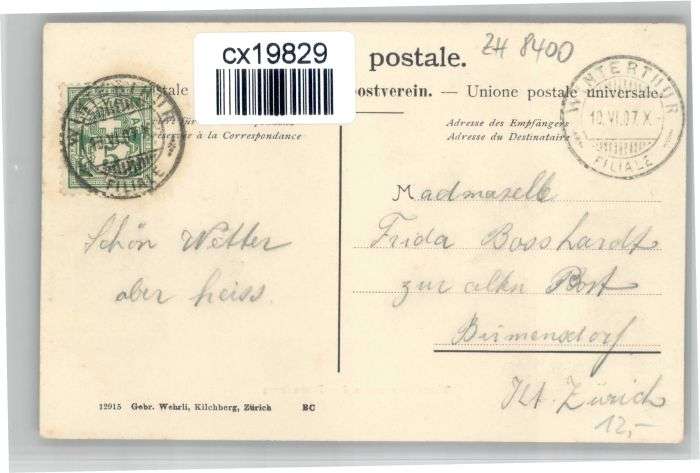 cx19829
postale.
ZH 8400
ostverein. — Unione postale universale.
à la Correspondance
Adresse des Empfängers
Adresse du Destinataire
WINTERTHUR
10.VI.07.X
FILIALE
WINTERTHUR
10.VI.07.X
FILIALE
5
Schön Wetter
aber heiss.
Madmaselle
Frida Bosshardt
zur alten Post
Birmensdorf
Kt. Zürich
12,-
12915 Gebr. Wehrli, Kilchberg, Zürich BC